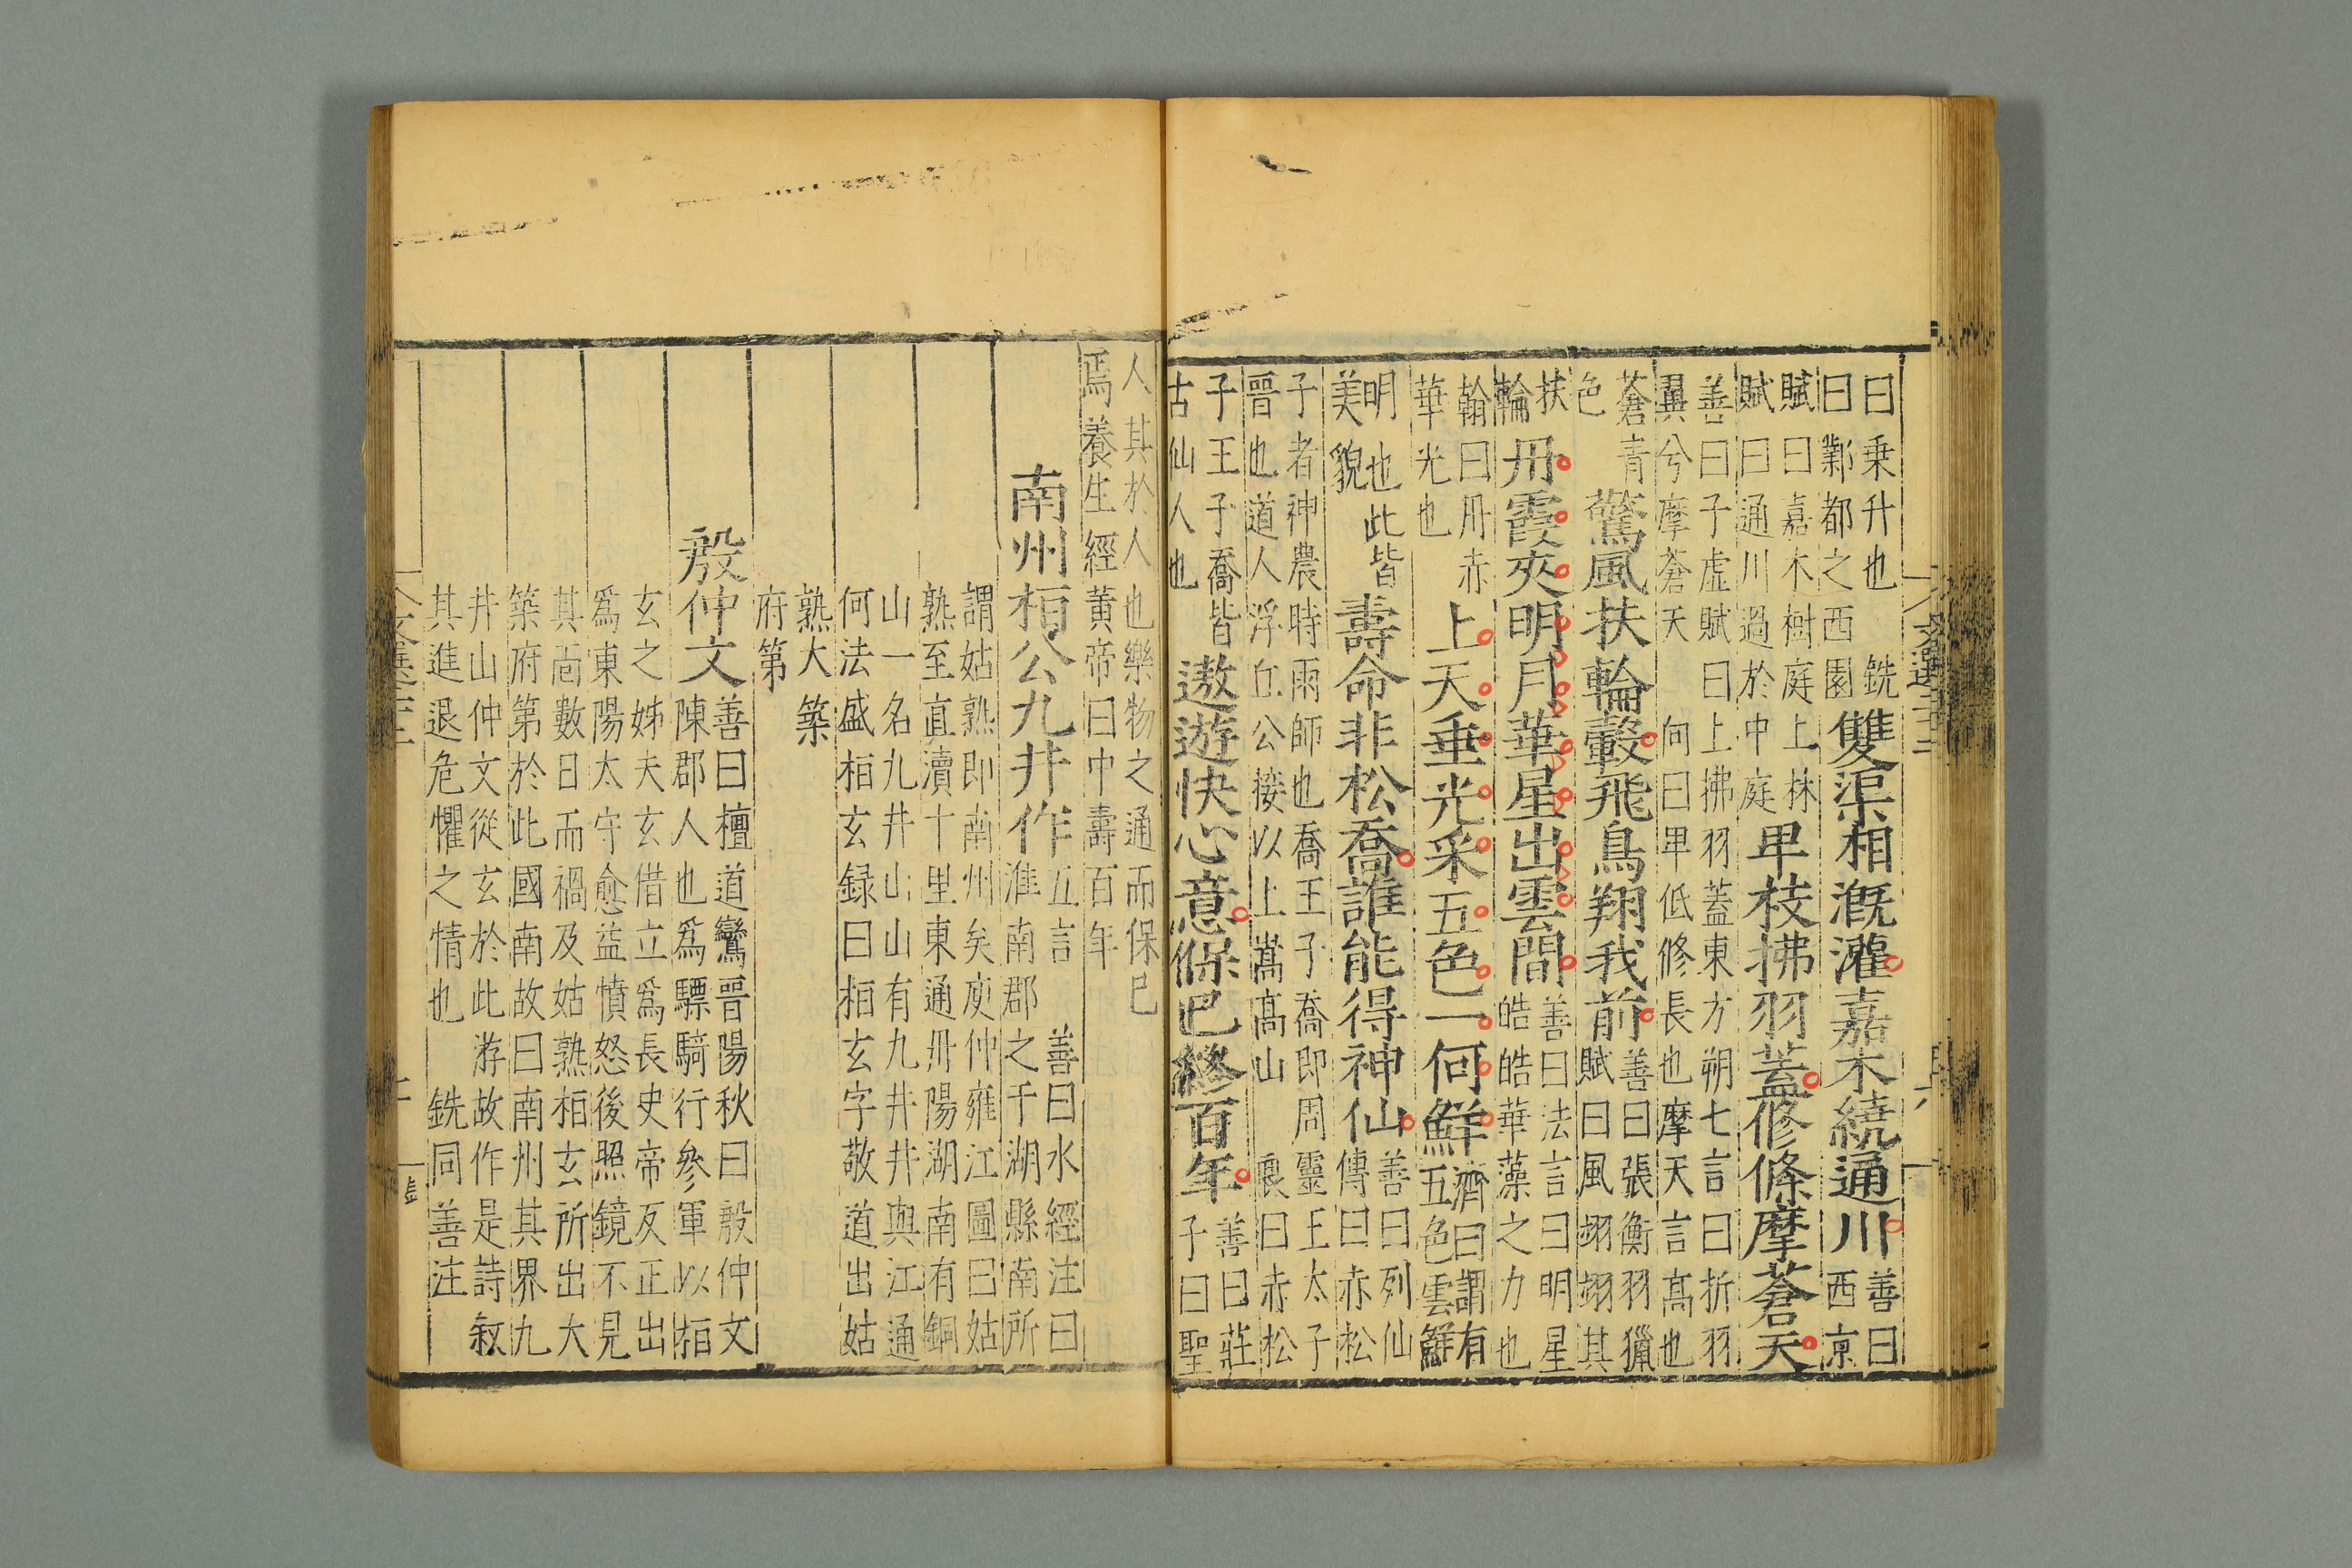 曰乘升也 銑
曰鄴都之西園
雙渠相漑灌嘉木繞通川
善曰
西京
賦曰嘉木樹庭上林
賦曰通川過於中庭
卑枝拂羽蓋修條摩蒼天
善曰子虛賦曰上拂羽蓋東方朔七言曰折羽
翼兮摩蒼天 向曰卑低修長也摩天言髙也
蒼青
色
驚風扶輪轂飛鳥翔我前
善曰張衡羽獵
賦曰風翊翊其
扶
輪
丹霞夾明月華星出雲間
善曰法言曰明星
皓皓華藻之力也
翰曰丹赤
華光也
上天垂光采五色一何鮮
濟曰謂有
五色雲鮮
明也此皆
美貌
壽命非松喬誰能得神仙
善曰列仙
傳曰赤松
子者神農時雨師也喬王子喬即周靈王太子
晋也道人浮丘公接以上嵩髙山 良曰赤松
子王子喬皆
古仙人也
遨遊快心意保已終百年
善曰莊
子曰聖
人其於人也樂物之通而保已
焉養生經黄帝曰中壽百年
南州桓公九井作
五言 善曰水經注曰
淮南郡之于湖縣南所
謂姑熟即南州矣庾仲雍江圖曰姑
熟至直瀆十里東通丹陽湖南有銅
山一名九井山山有九井井與江通
何法盛桓玄録曰桓玄字敬道出姑
熟大築
府第
殷仲文
善曰檀道鸞晋陽秋曰殷仲文
陳郡人也爲驃騎行參軍以桓
玄之姊夫玄借立爲長史帝反正出
爲東陽太守愈益憤怒後照鏡不見
其面數日而禍及姑熟桓玄所出大
築府第於此國南故曰南州其界九
井山仲文從玄於此游故作是詩敘
其進退危懼之情也 銑同善注